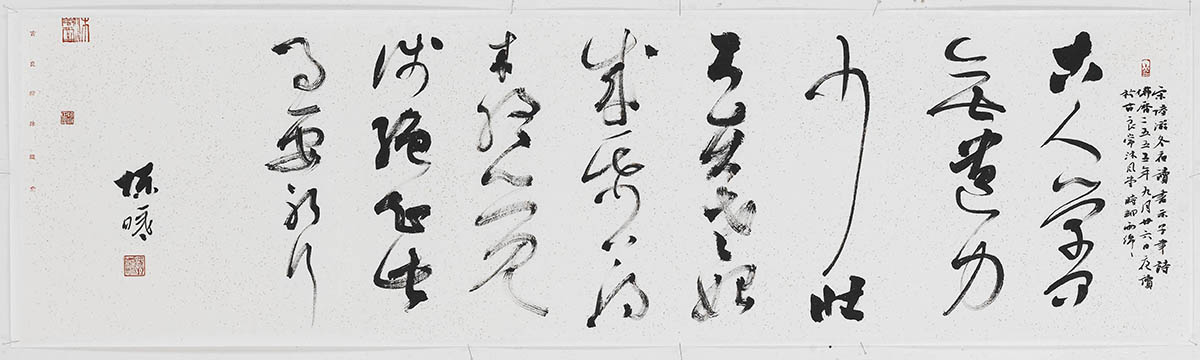 宋陸游冬夜讀書示子聿詩
佛曆二五五五年九月廿六日夜讀
於古良常沐風堂時
古人学问
無遺力
少壯
工夫老始
成紙上得
来終覺
淺絕知此
事要躬行